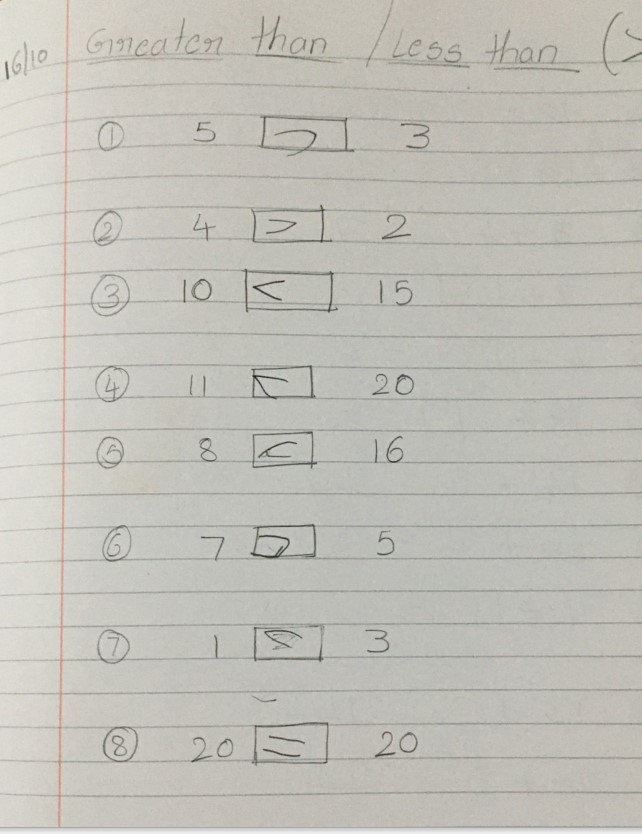 16/10 Greater than / Less than (>
① 5 > 3
② 4 > 2
③ 10 < 15
④ 11 < 20
⑤ 8 < 16
⑥ 7 > 5
⑦ 1 3
⑧ 20 = 20